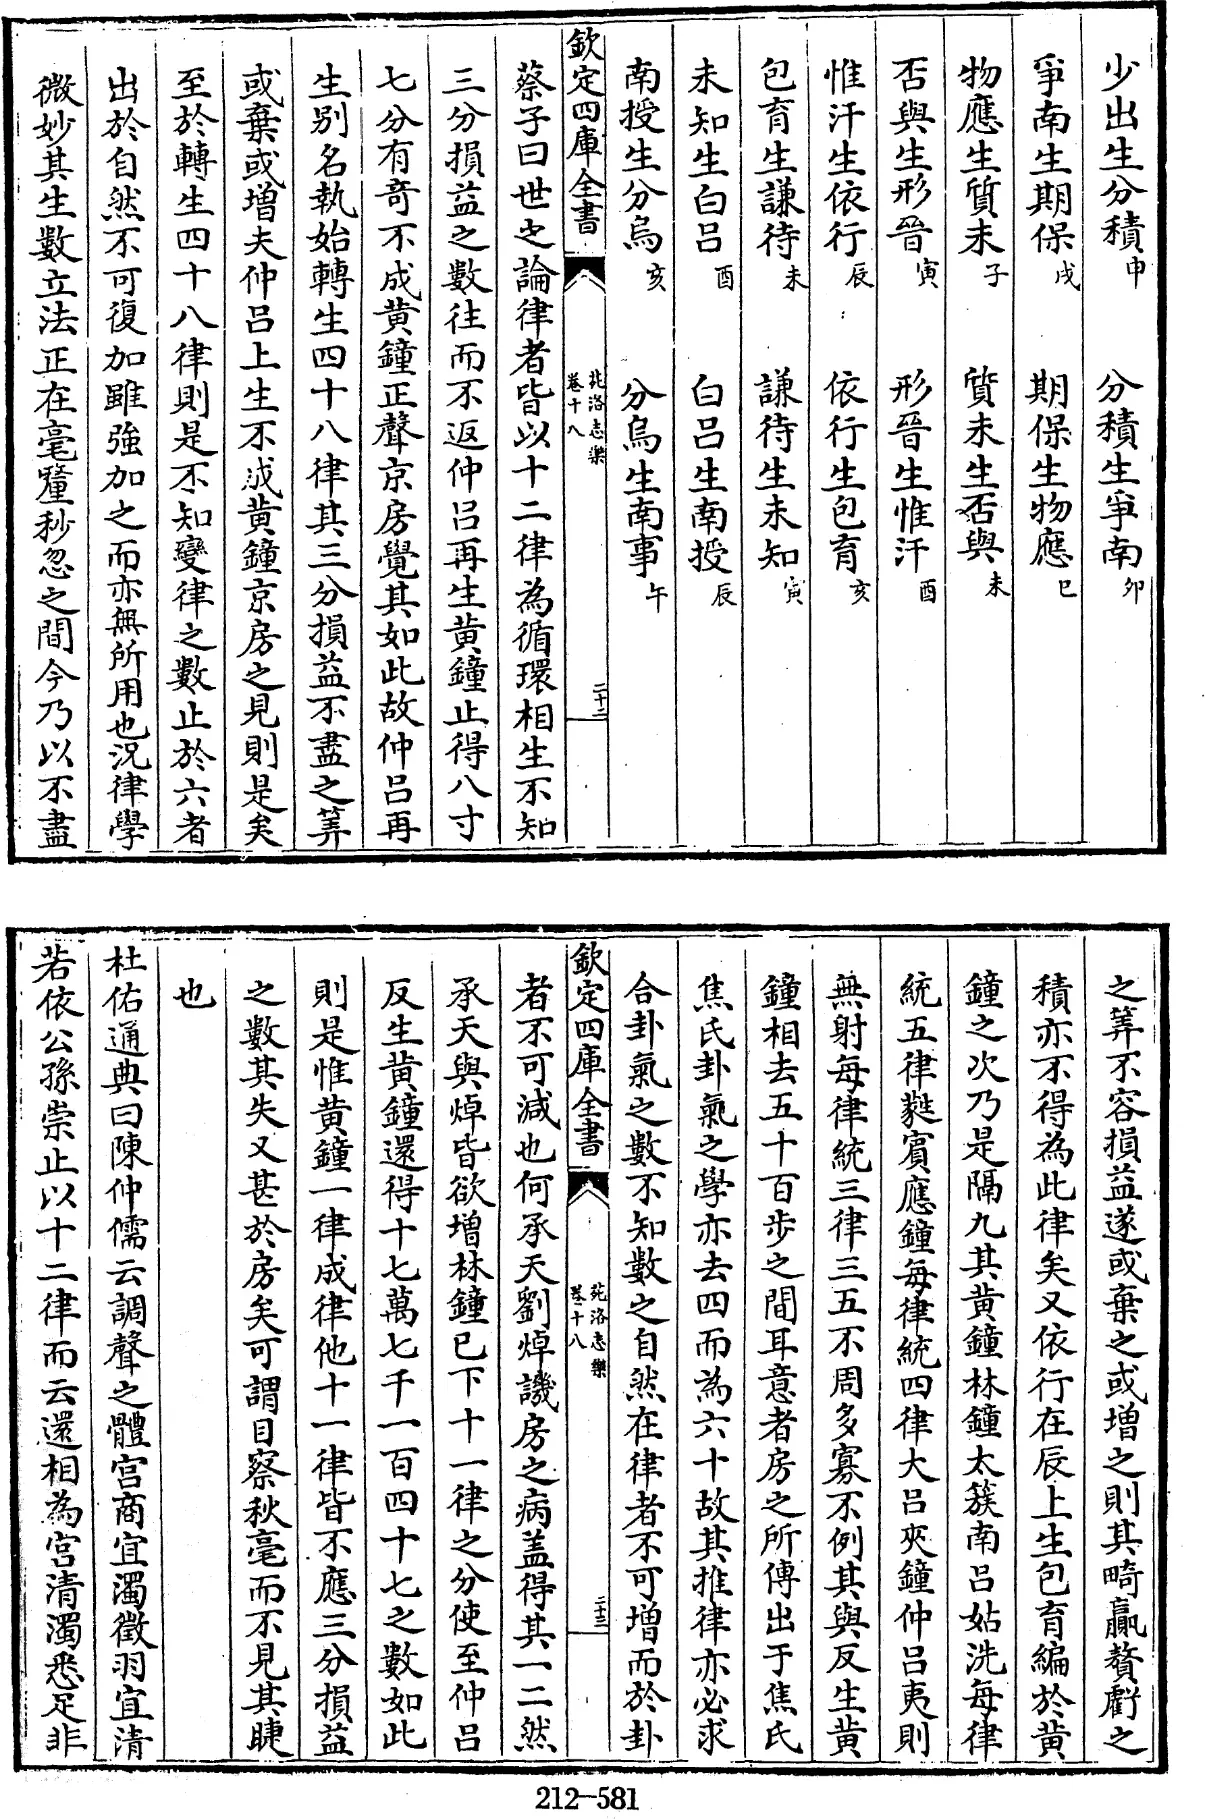 少出生分積申　分積生爭南卯
爭南生期保戌　期保生物應巳
物應生質未子　質未生否與未
否與生形晉寅　形晉生惟汗酉
惟汗生依行辰　依行生包育亥
包育生謙待未　謙待生未知寅
未知生白呂酉　白呂生南授辰
南授生分烏亥　分烏生南事午
欽定四庫全書
苑洛志樂
卷十八
二十二
蔡子曰世之論律者皆以十二律為循環相生不知
三分損益之數往而不返仲呂再生黃鐘止得八寸
七分有奇不成黃鐘正聲京房覺其如此故仲呂再
生别名執始轉生四十八律其三分損益不盡之筭
或棄或增夫仲呂上生不成黃鐘京房之見則是矣
至於轉生四十八律則是不知變律之數止於六者
出於自然不可復加雖強加之而亦無所用也況律學
微妙其生數立法正在毫釐秒忽之間今乃以不盡
之筭不容損益遂或棄之或增之則其畸贏贅虧之
積亦不得為此律矣又依行在辰上生包育編於黃
鐘之次乃是隔九其黃鐘林鐘太簇南呂姑洗每律
統五律蕤賓應鐘每律統四律大呂夾鐘仲呂夷則
無射每律統三律三五不周多寡不例其與反生黃
鐘相去五十百步之間耳意者房之所傳出于焦氏
焦氏卦氣之學亦去四而為六十故其推律亦必求
合卦氣之數不知數之自然在律者不可增而於卦
欽定四庫全書
苑洛志樂
卷十八
二十三
者不可減也何承天劉焯譏房之病蓋得其一二然
承天與焯皆欲增林鐘已下十一律之分使至仲呂
反生黃鐘還得十七萬七千一百四十七之數如此
則是惟黃鐘一律成律他十一律皆不應三分損益
之數其失又甚於房矣可謂目察秋毫而不見其睫
也
杜佑通典曰陳仲儒云調聲之體宫商宜濁徵羽宜清
若依公孫崇止以十二律而云還相為宫清濁悉足非
212-581